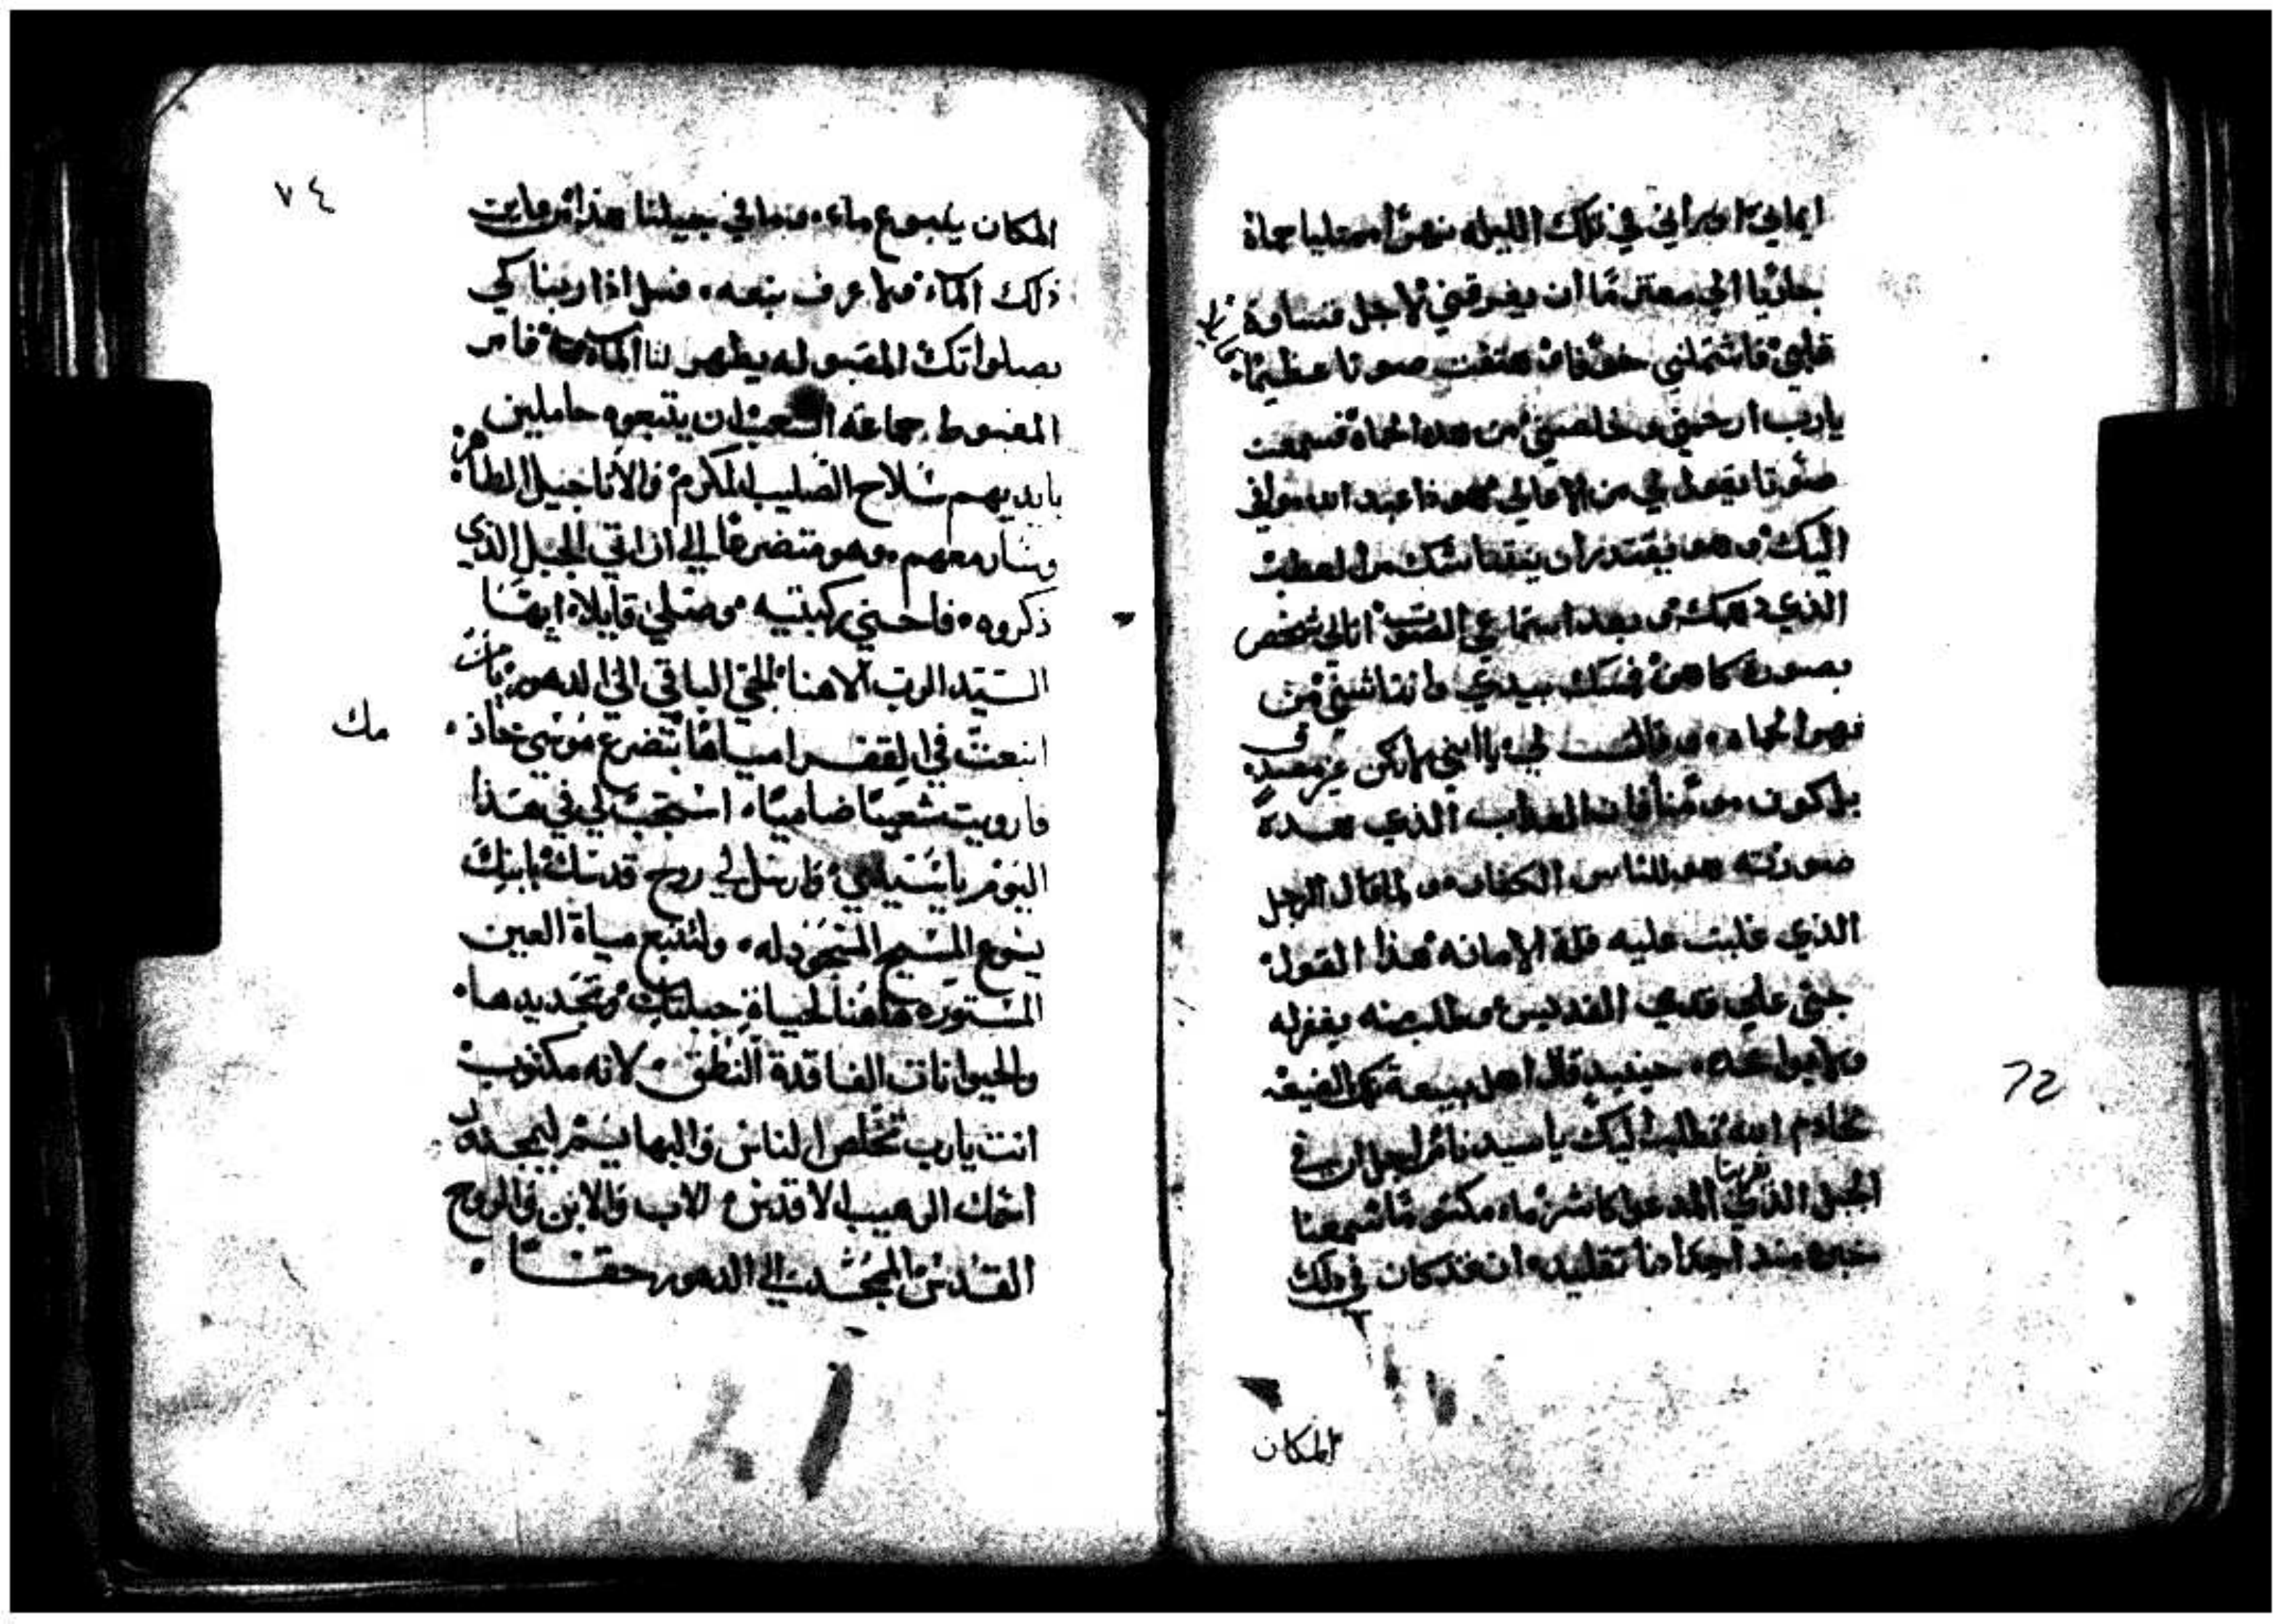 ايماني اوراني في تلك الليله نهرًا ممتليا حماة
جاريا الي معتزمًا ان يغرقني لاجل قساوة
قلبي فاشتملني خوفا فهتفت صوتا عظيمًا
يارب ارحمني وخلصني من هده الحماه فسمعت
صوتا يقول لي من الاعالي هوذا عبد الله موافي
اليك وهو يقتدر ان
الذي وبعد استماعي الصوت اتاني شخص
بصورة كاهن فمسك بيدي وانتاشني من
نهر الحماه وقالت لي يا ابني لا تكن غير مصدق
بل كون مومنا فان العداب الذي هده
صورته هو للناس الكفار ولما قال الرجل
الذي غلبت عليه قلة الامانه هذا القول
جثي علي قدمي القديس وطلب منه يغفر له
ولا يواخذه حينيد قال اهل بيعة تلك الضيعه
لخادم الله نطلب اليك يا سيدنا من اجل ان في
الجبل الذي قربنا المدعوا كاشر ماء مكتوما سمعنا
خبره مند اجدادنا تقليده ان قد كان في دلك
المكان
٧٤
المكان ينبوع ماء وبما في جيلنا هذا من عاين
ذلك الماء ولا عرف نبعه فسل اذا ربنا لكي
بصلواتك المقبوله يظهر لنا الماء فامر
المغبوط جماعة الشعب ان يتبعوه حاملين
بايديهم سلاح الصليب المكرم والاناجيل الطاهره
وسار معهم وهو متضرعا الي ان اتي الجبل الذي
ذكروه فاحني ركبتيه وصلي قايلا ايها
السيد الرب الاهنا الحي الباقي الي الدهور يا من
انبعت في القفر امياها بتضرع موسي خاذ
مك
وارويت شعبنا ضاميا استجب لي في هذا
اليوم يا سيدي وارسل لي روح قدسك بابنك
يسوع المسيح المسجود له ولتنبع مياة العين
المستوره هاهنا لحياة جبلتك وتجديدها
والحيوانات الفاقدة النطق لانه مكتوب
انت يارب تخلص الناس والبهايم ليمجد
اسمك الرهيب الاقدس الاب والابن والروح
القدس المجد الي الدهور حقا